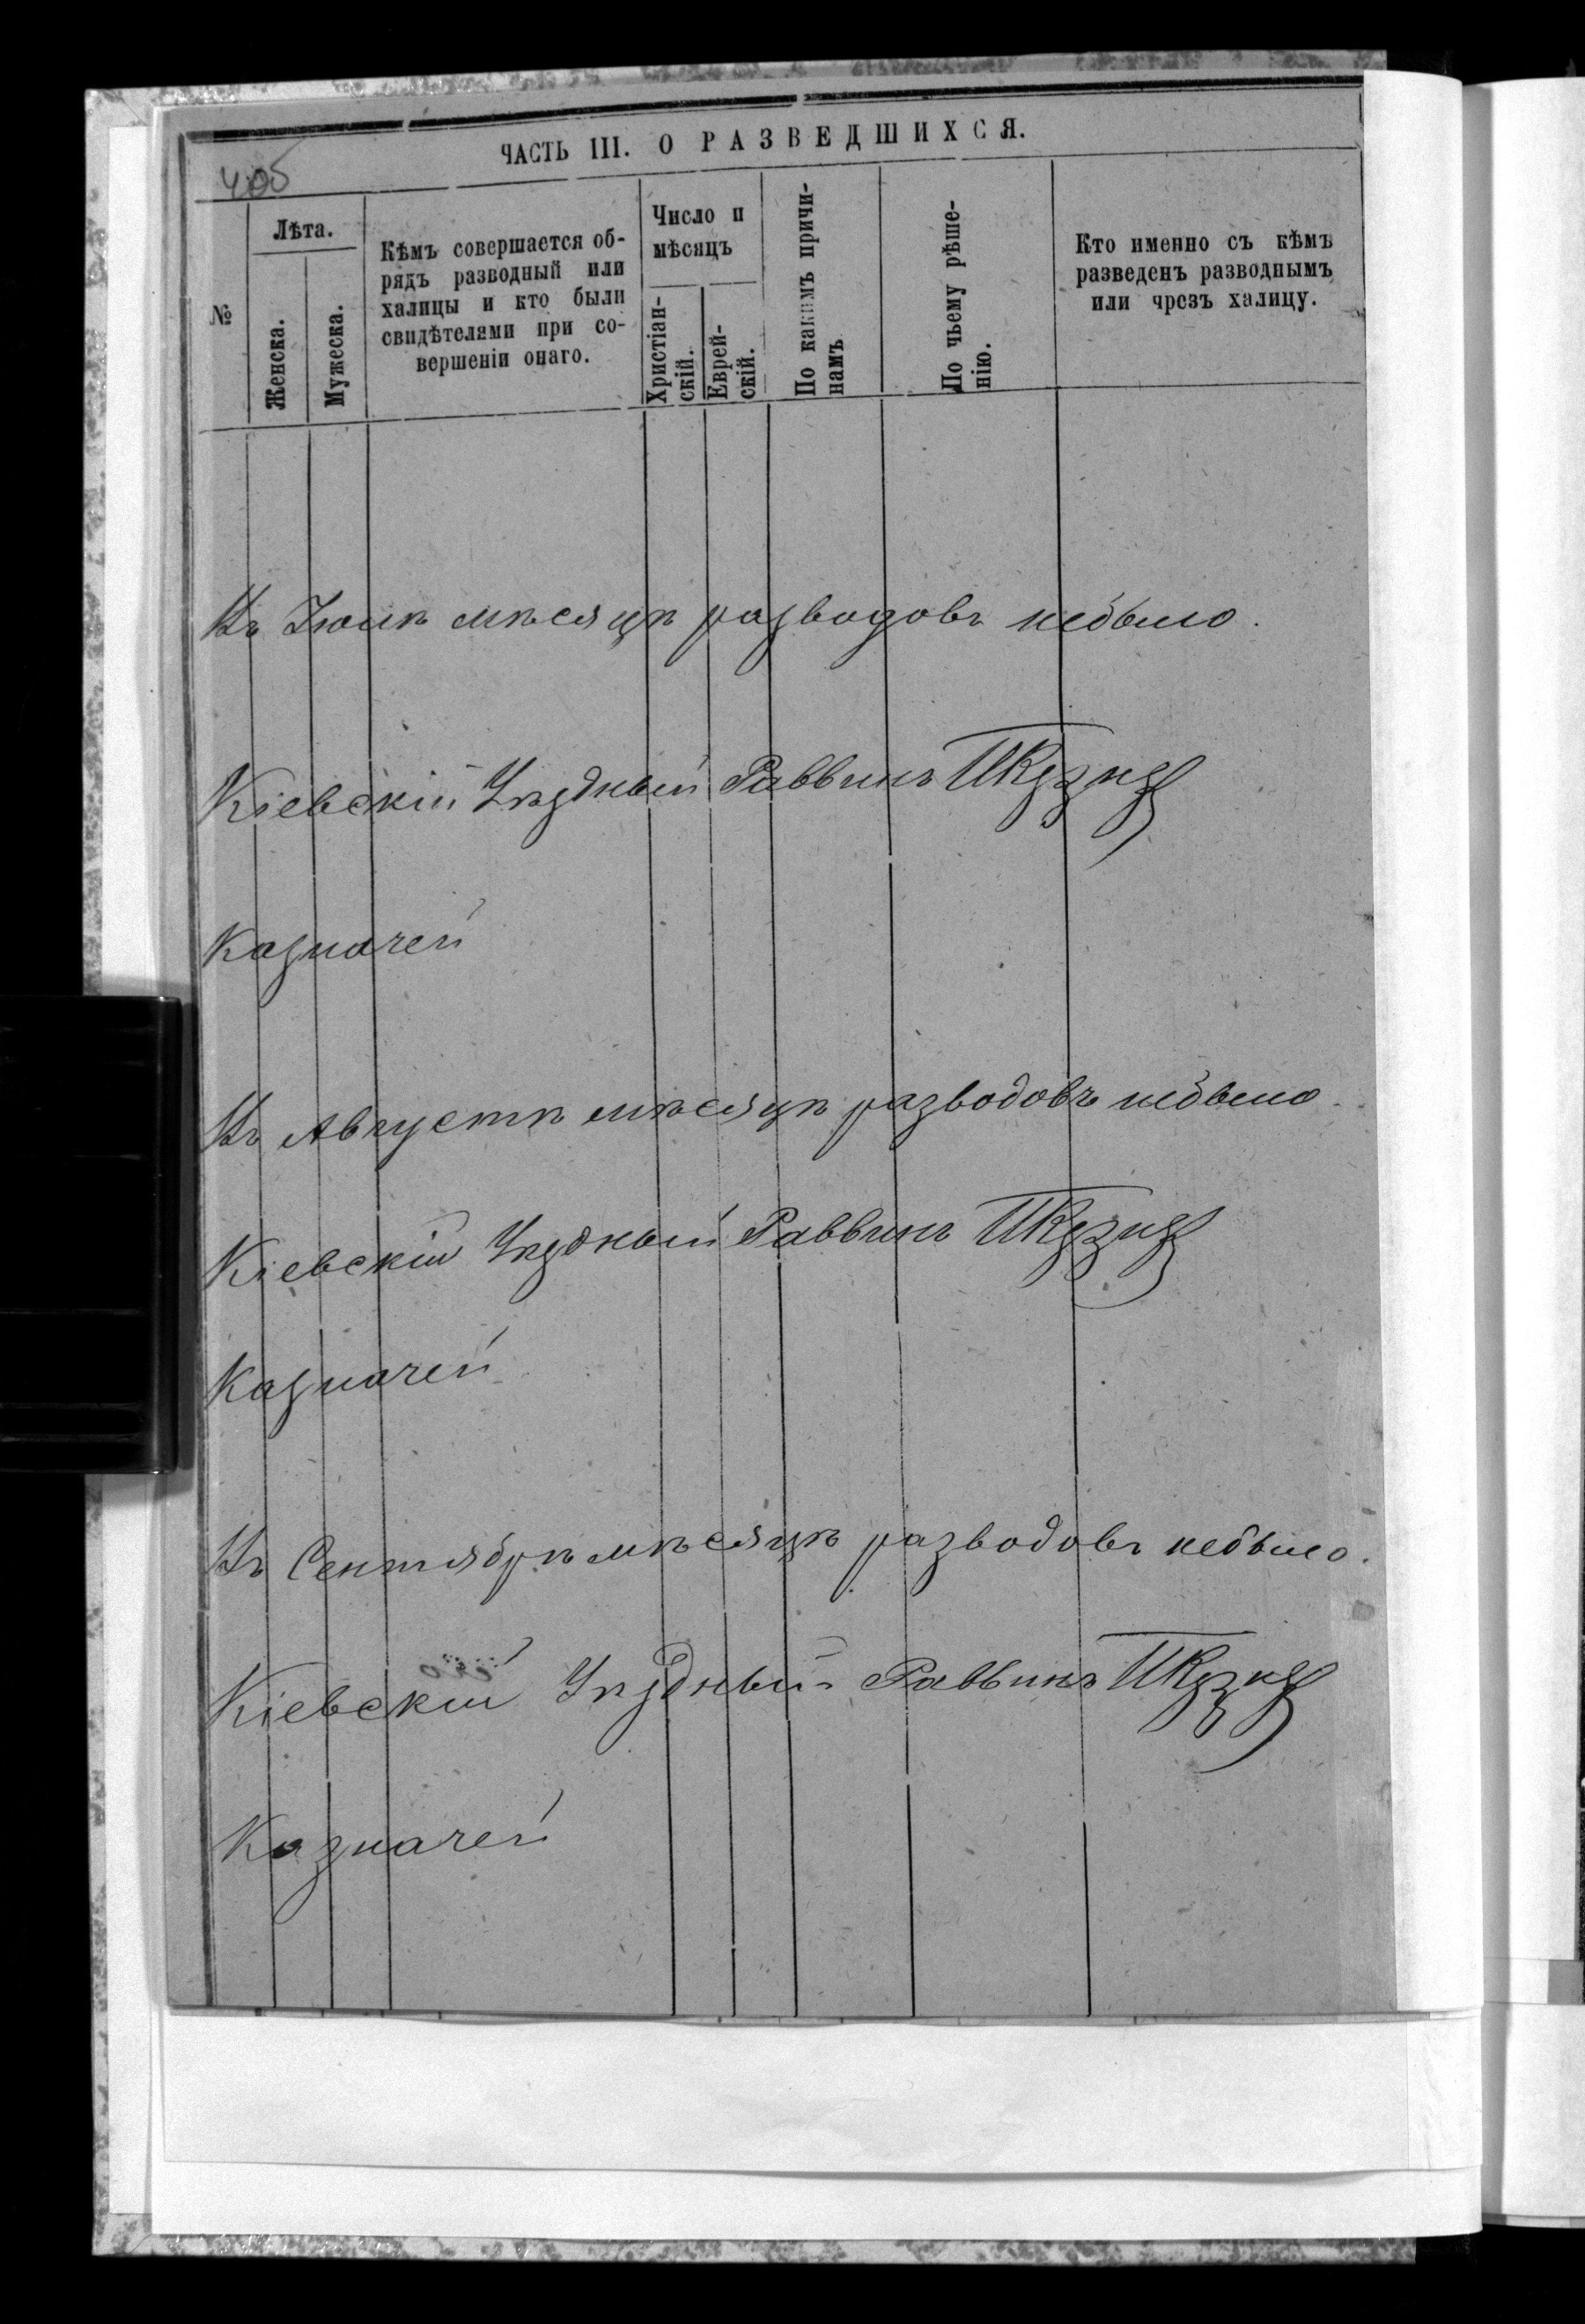 ЧАСТЬ III. О РАЗВЕДШИХСЯ.
405
№
Лѣта.
Женска.
Мужеска.
Кѣмъ совершается об-
рядъ разводный или
халицы и кто были
свидѣтелями при со-
вершеніи онаго.
Число и
мѣсяцъ
Христіан-
скій.
Еврей-
скій.
По какимъ причи-
намъ
По чьему рѣше-
нію.
Кто именно съ кѣмъ
разведенъ разводнымъ
или чрезъ халицу.
Въ Іюлѣ мѣсяцѣ разводовъ небыло.
Кіевскій Уѣздный Раввинъ
Казначей
Въ Августѣ мѣсяцѣ разводовъ небыло.
Кіевскій Уѣздный Раввинъ
Казначей
Въ Сентябрѣ мѣсяцѣ разводовъ небыло.
Кіевскій Уѣздный Раввинъ
Казначей